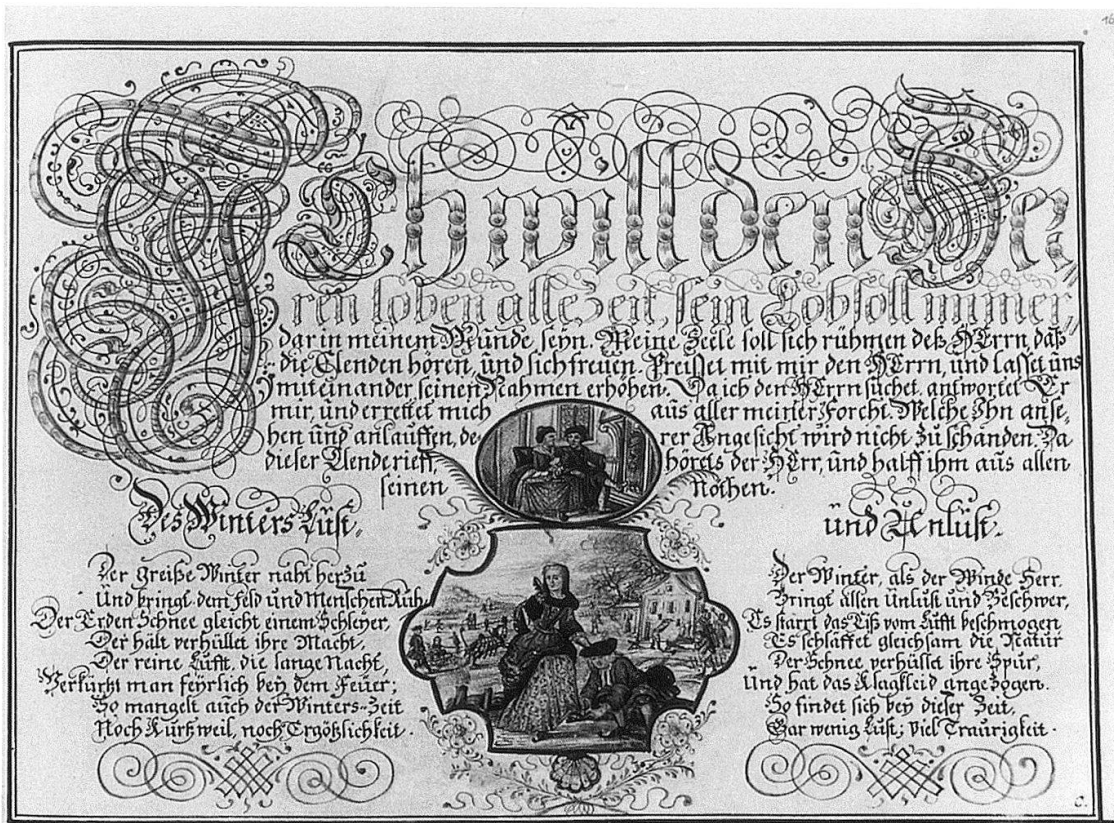 16
ICh will den HEr„
ren loben allezeit, sein Lob soll immer„
dar in meinem Munde seyn. Meine Seele soll sich rühmen deß HErrn, daß
die Elenden hören, und sich freuen. Preisset mit mir den HErrn, und lasset uns
miteinander seinen Nahmen erhöhen. Da ich den HErrn suchet, antwortet Er
mir, und errettet mich aus aller meiner Forcht. Welche Ihn anse„
hen und anlauffen, de„ rer Angesicht wird nicht zu schanden. Da
dieser Elende rieff, hörets der HErr, und halff ihm aus allen
seinen Nöthen.
Des Winters Lust,
Der greiße Winter naht herzu
Und bringt dem Feld und Menschen Ruh,
Der Erden Schnee gleicht einem Schleyer,
Der hält verhüllet ihre Macht,
Der reine Lufft, die lange Nacht,
Verkürtzt man feyrlich bey dem Feuer;
So mangelt auch der Winters-Zeit
Noch Kurtzweil, noch Ergötzlichkeit.
und Unlust.
Der Winter, als der Winde Herr,
Bringt allen Unlust und Beschwer,
Es starrt das Eiß vom Lufft beschmogen
Es schlaffet gleichsam die Natur
Der Schnee verhüllet ihre Spur,
Und hat das Klagkleid angezogen.
So findet sich bey dieser Zeit,
Gar wenig Lust; viel Traurigkeit.
C.